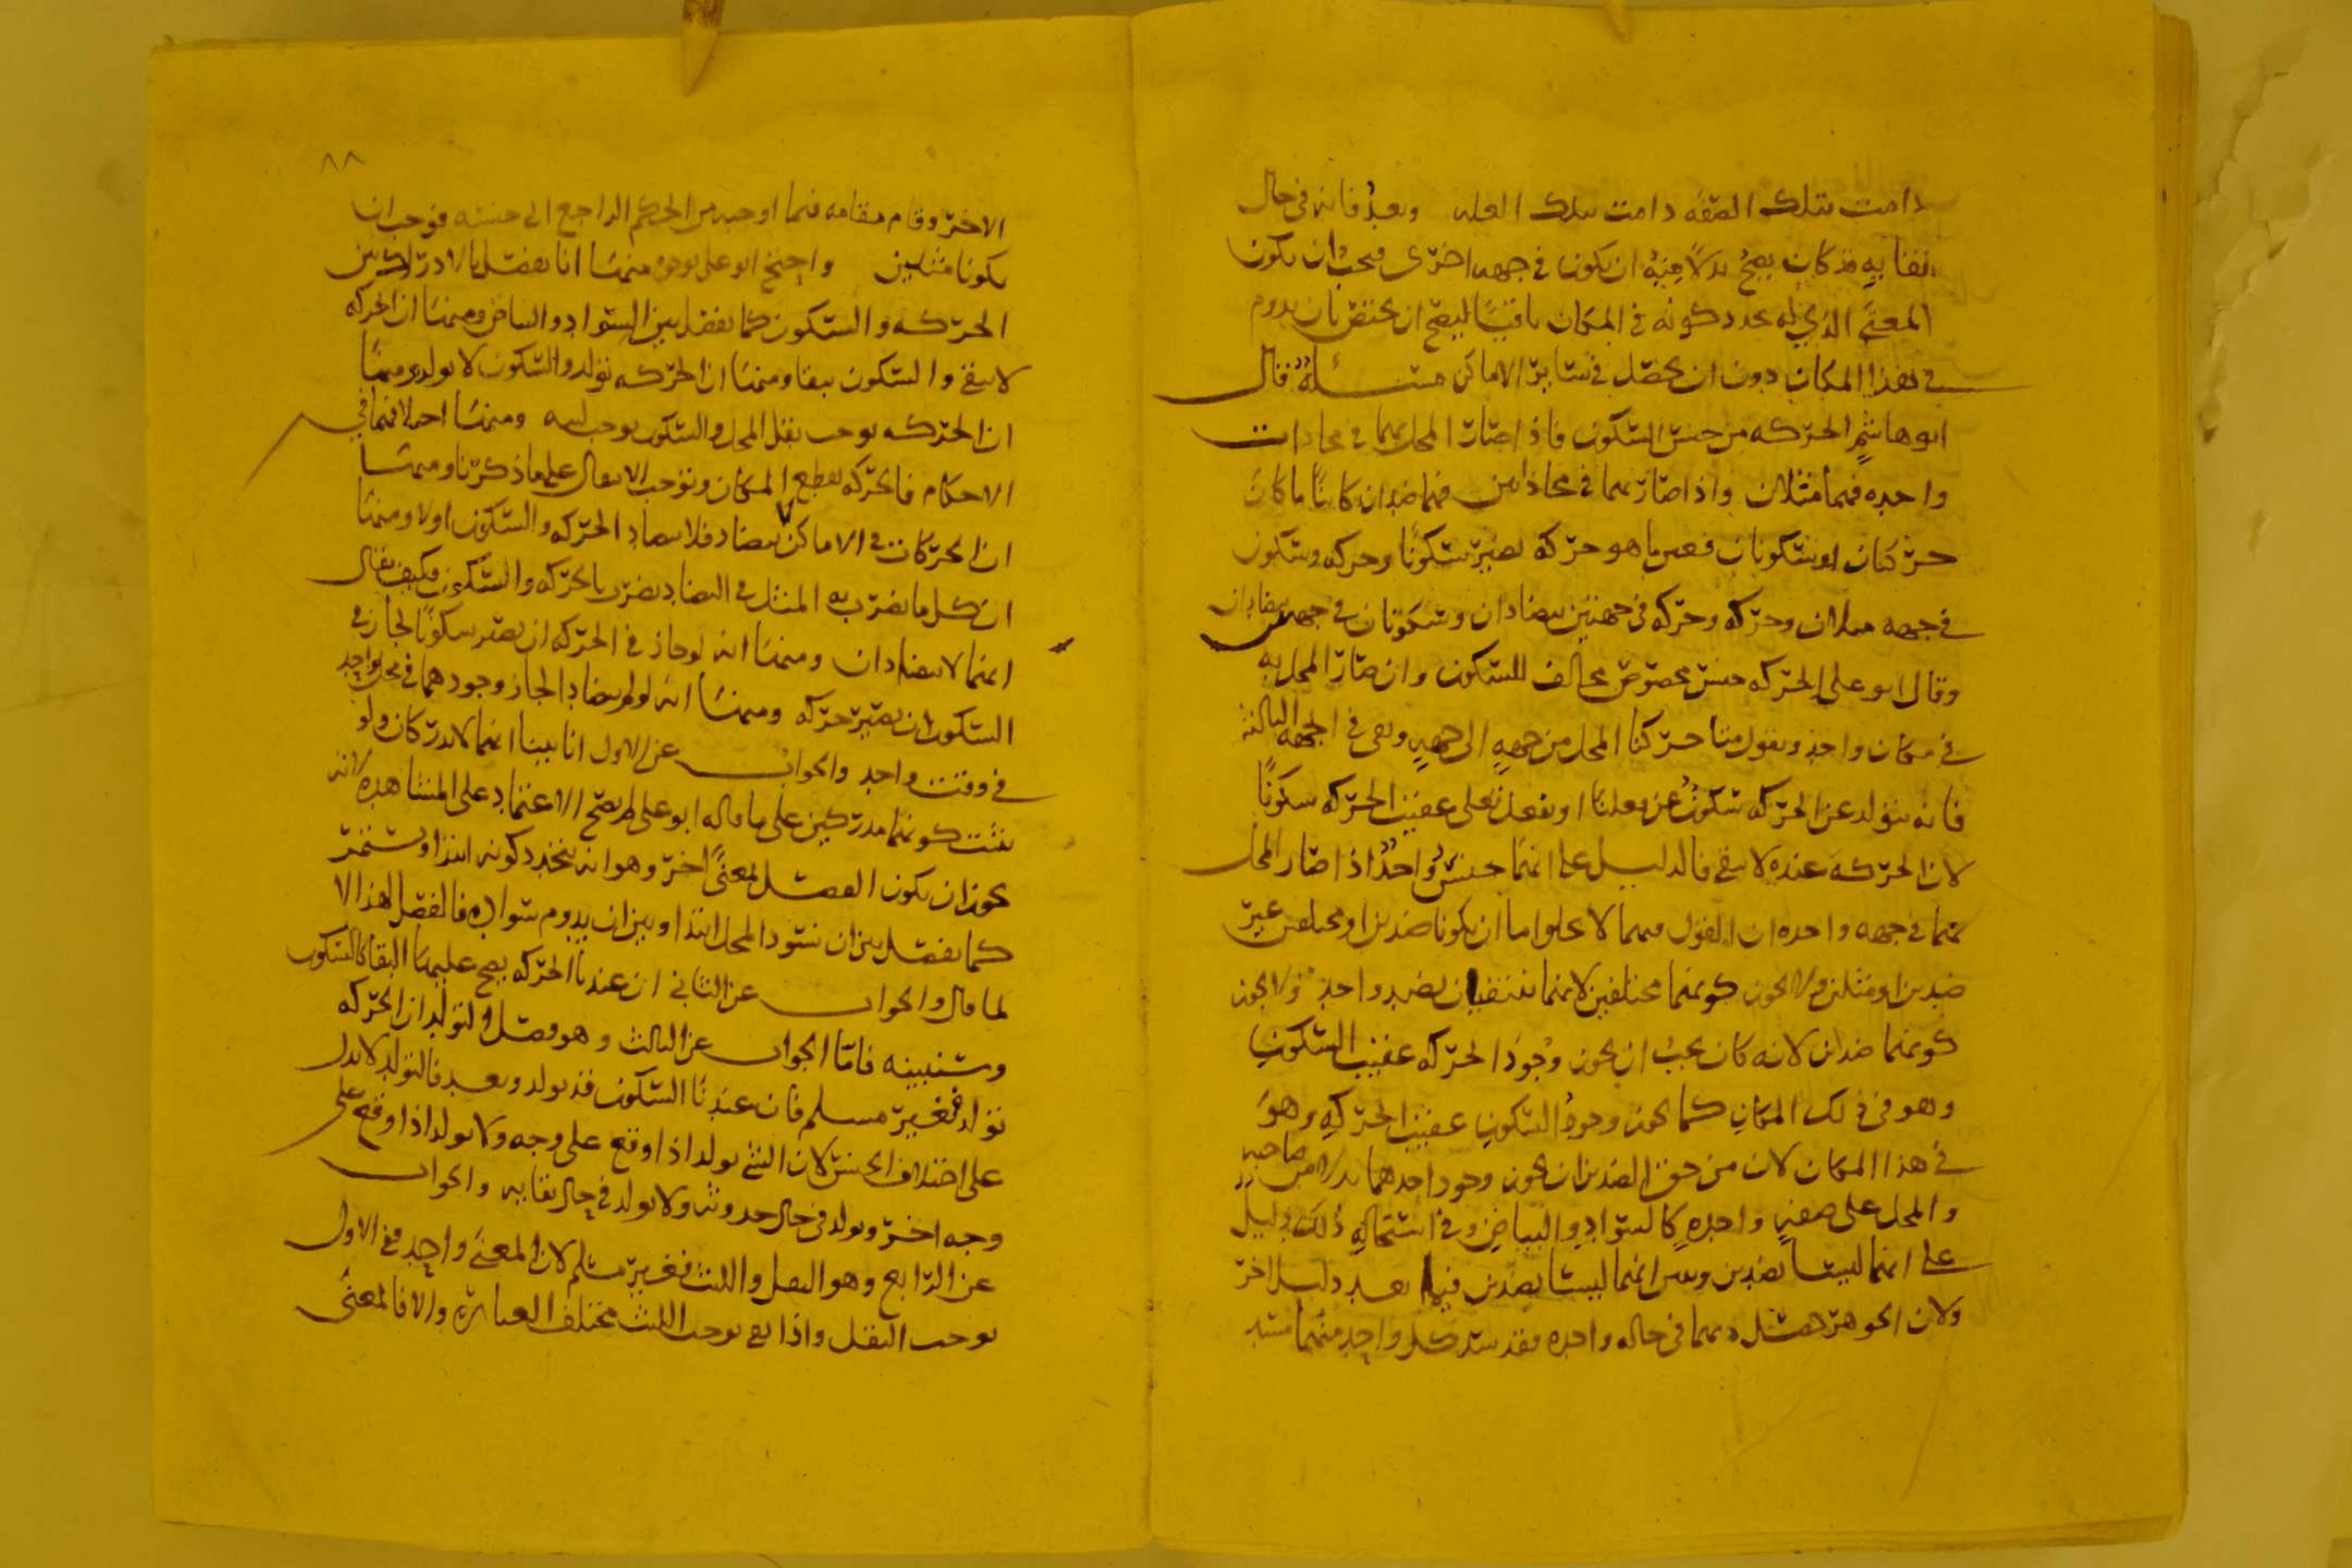 دامت بتلك الصفه دامت بتلك العله وبعد فانه في حال
بقايه قد كان يصح بدلا منه ان يكون في جهه اخرى فيجب ان يكون
المعنى الذي له تجدد كونه في المكان باقيا ليصح ان يختص بان يدوم
في هذا المكان دون ان يحصل في ساير الاماكن مسئلة قال
ابو هاشم الحركه من جنس السكون فاذا صار المحل بهما في محاذات
واحده فهما مثلان واذا صار بهما في محاذاتين فهما ضدان كاينا ما كان
حركتان او سكونان فعين ما هو حركه يصير سكونا وحركه وسكون
في جهه مثلان وحركه وحركه في جهتين يتضادان وسكونان في جهتين يتضادان
وقال ابو علي الحركه جنس مخصوص مخالف للسكون وان صار المحل به
في مكان واحد ويقول متى حركنا المحل من جهه الى جهه وبقى في الجهه الثالثه
فانه يتولد عن الحركه سكون عن فعلنا او يفعل تعلى عقيب الحركه سكونا
لان الحركه عنده لا تبقى فالدليل على انهما جنس واحد اذا صار المحل
بهما في جهه واحده ان القول فيهما لا يخلوا اما ان يكونا ضدين او مختلفين غير
ضدين او مثلين ولا يجوز كونهما مختلفين لانهما ينتفيان بضد واحد ولا يجوز
كونهما ضدين لانه كان يجب ان يجوز وجود الحركه عقيب السكون
وهو في ذلك المكان كما يجوز وجود السكون عقيب الحركه وهو
في هذا المكان لان من حق الضدين ان يجوز وجود احدهما بدلا من صاحبه
والمحل على صفه واحده كالسواد والبياض وفي استحاله ذلك دليل
على انهما ليسا بضدين وتبين انهما ليسا بضدين فيما بعد دليل اخر
ولان الجوهر حصل بهما في حاله واحده فقد سد كل واحد منهما مسد
٨٨
الاخر وقام مقامه فيما اوجبه من الحكم الراجع الى جنسه فوجب ان
يكونا مثلين واحتج ابو علي بوجوه منها انا نفصل بالادراك بين
الحركه والسكون كما نفصل بين السواد والبياض ومنها ان الحركه
لا تبقى والسكون يبقا ومنها ان الحركه تولد والسكون لا يولد ومنها
ان الحركه توجب نقل المحل والسكون يوجب لبثه ومنها اختلافهما في
الاحكام فالحركه تقطع المكان وتوجب الانتقال على ما ذكرنا ومنها
ان الحركات في الاماكن تتضاد فلا تتضاد الحركه والسكون اولا ومنها
ان كل ما يضرب به المثل في التضاد يضرب بالحركه والسكون فكيف يقال
انهما لا يتضادان ومنها انه لو جاز في الحركه ان تصير سكونا لجاز في
السكون ان يصير حركه ومنها انه لو لم يتضادا لجاز وجودهما في محل واحد
في وقت واحد والجواب عن الاول انا بينا انهما لا يدركان ولو
ثبت كونهما مدركين على ما قاله ابو علي لم يصح الاعتماد على المشاهده لانه
يجوز ان يكون الفصل لمعنى اخر وهو انه يتجدد كونه ابتدا ويستمر
كما نفصل بين ان يسود المحل ابتدا وبين ان يدوم سواده فالفصل لهذا لا
لما قال والجواب عن الثاني ان عندنا الحركه يصح عليها البقا كالسكون
وسنبينه فاما الجواب عن الثالث وهو فصل التولد ان الحركه
تولد فغير مسلم فان عندنا السكون قد يولد وبعد فالتولد لا يدل
على اختلاف الجنس لان الشي يولد اذا وقع على وجه ولا يولد اذا وقع على
وجه اخر ويولد في حال حدوثه ولا يولد في حال بقايه والجواب
عن الرابع وهو النقل واللبث فغير مسلم لان المعنى واحد ففي الاول
يوجب النقل واذا بقي يوجب اللبث فتختلف العباره والا فالمعنى